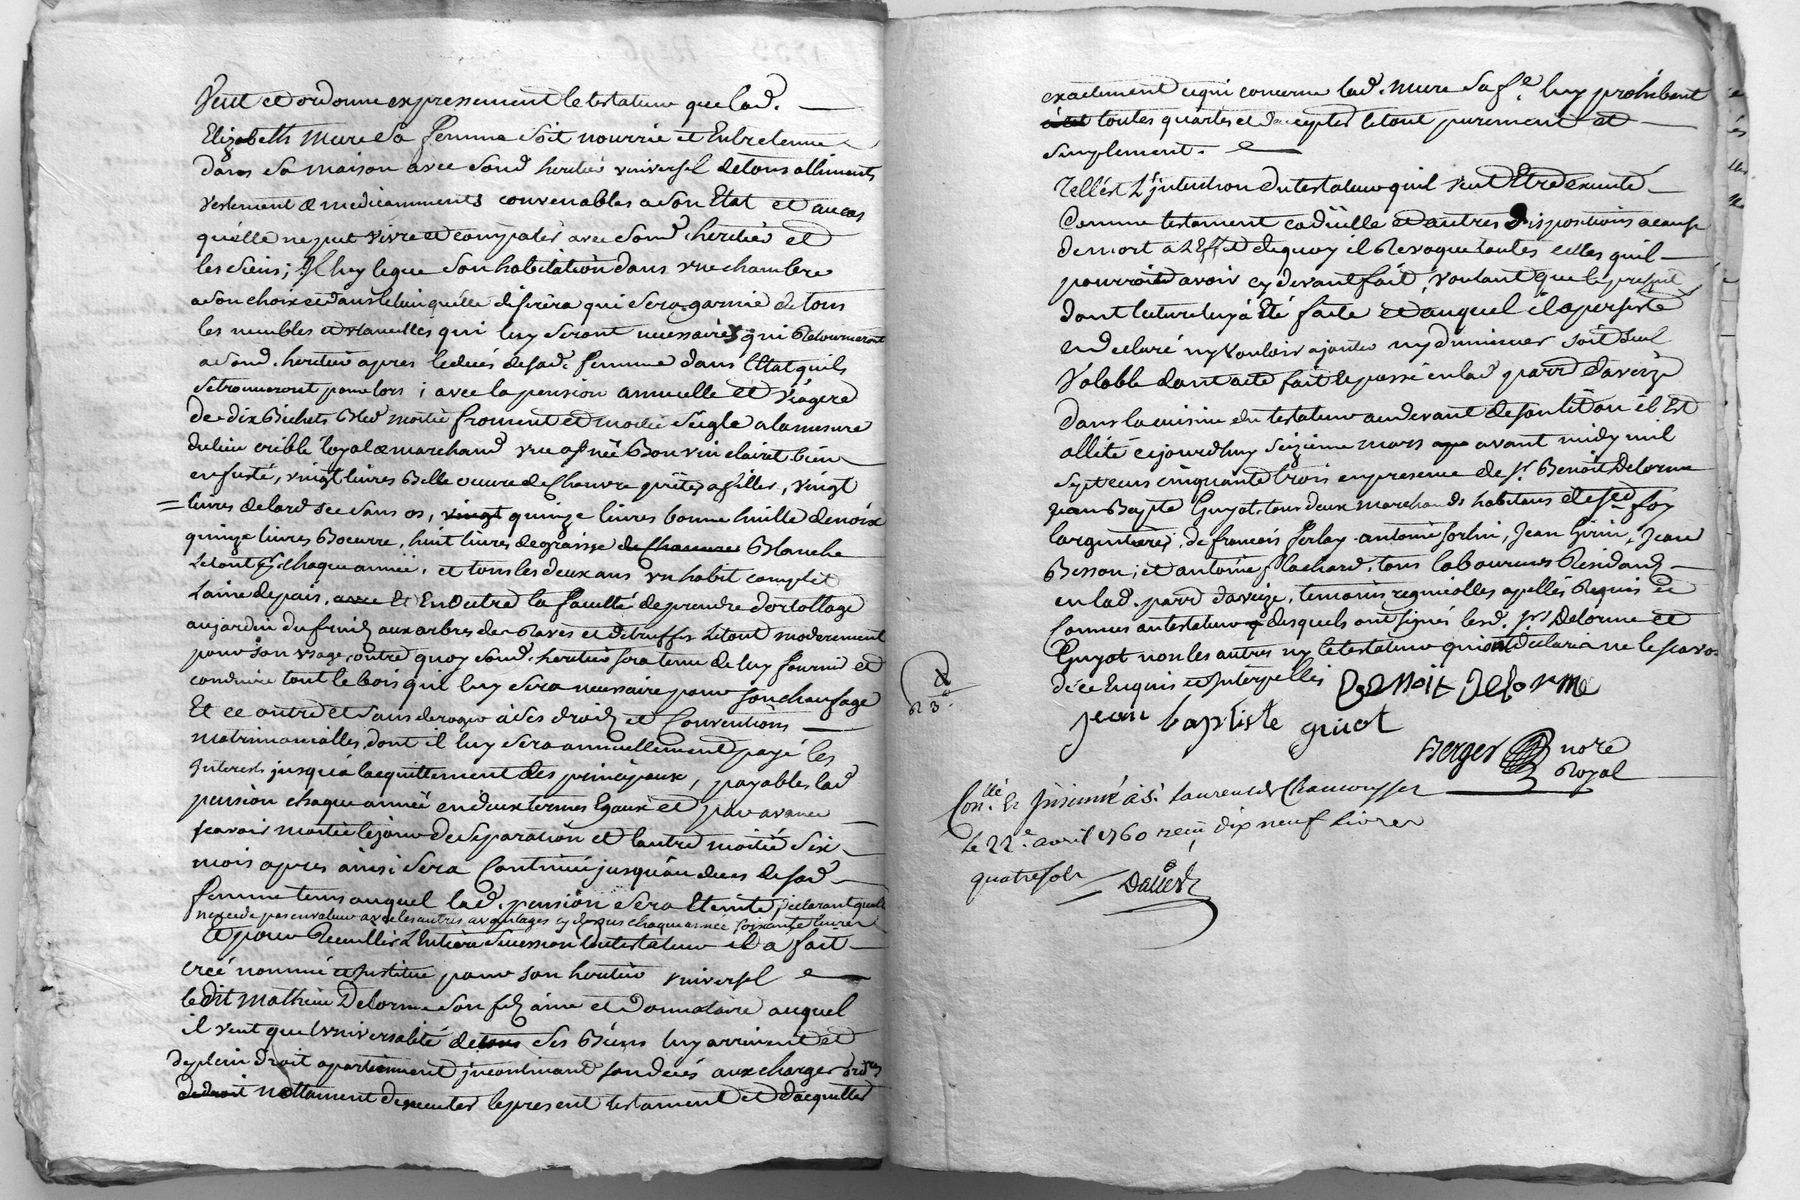 Veut et ordonne expressement le testateur que lad.
Elizabeth Mure sa femme soit nourrie et Entretenue
dans sa maison avec sond heritier universel de tous alliments
vestement & medicamments convenables a son Etat et au cas
qu'elle ne put vivre et compatir avec sond. heritier et
les siens; Il luy legue son habitation dans une chambre
a son choix et dans le lieu quelle désirera qui sera garnie de tous
les meubles et ustancilles qui luy seront necessaires qui Retourneront
a sond. heritier apres le decés de sad. femme dans l'Etat quils
se trouveront pour lors ; avec la pension annuelle et viagere
de dix Bichets Bled moitié froment et moitié seigle a la mesure
du lieu crible loyal & marchand une asnée Bon vin clairet bien
enfusté, vingt livres Belle oeuvre de Chanvre prêtes a filler, vingt
livres de lard sec sans os, vingt quinze livres bonne huille de noix
quinze livres Boeurre, huit livres de graisse de Chanvre Blanche
Le tout chaque année, et tous les deux ans un habit complet
Laine de pais, avec Et En Outre la faculté de prendre d'ortollage
au jardin du fruit aux arbres des Raves et de truffes Le tout moderement
pour son usage, outre quoy sond. heritier sera tenu de luy fournir et
conduire tout le bois qui luy sera necessaire pour son chaufage
Et ce outre et sans deroger à ses droits et Conventions
matrimonialles, dont il luy sera annuellement payé les
Interests jusqu'à lacquittement des principaux, payables lad
pension chaque année en deux termes Egaux et par avance
scavoir moitié le jour de separation et lautre moitié six
mois apres ainsi sera Continué jusquau deces de sad
femme tems auquel lad. pension sera Eteinte, declarant quelle
nexcede pas en valeur avec les autres avantages cy dessus chaque année soixante livres
Et pour Recuillir L'Entiere Succession dutestateur il a fait
créé nommé et Institué pour son heritier universel
le dit Mathieu Delorme son fils ainé et donnataire auquel
il veut que l'universalité de tous ses Biens luy arrivent et
de plein droit apartiennent jncontinant son decés aux charges ord.res
de droit nottament dexecuter le present testament et dacquitter
exactement ce qui concerne lad. Mure sa f.e luy prohibant
toutes quartes et daccepter le tout purement et
simplement.
Tell'est L'jntention du testateur quil veut Etre executé
Comme testament codicille et autres dispositions a cause
de mort a L'Effet de quoy il Revoque toutes celles quil
pourroit avoir cy devant fait, voulant que le present
dont lecture luy a Eté faite et auquel il a persisté
et declaré ny vouloir ajouter ny diminuer soit seul
Valable dont acte fait et passé en lad parr d'aveize
dans la cuisine du testateur au devant de son lit où il Est
allité cejourdhuy seizieme mars avant midy mil
sept cens cinquante trois en presence de Sr. Benoît Delorme
Jean Bapte Guyot tous deux marchands habitans de ste foy
largentiere, de françois ferlay antoine sorlin, Jean Girin, Jean
Besson, et antoine flachard, tous laboureurs Residans
en lad. parr d'aveize, temoins regnicolles apellés Requis et
Connus au testateur desquels ont signés lesd. Srs Delorme et
Guyot non les autres ny le testateur qui ont declaré ne le scavoir
de ce Enquis et Interpellés Benoit delorme
jean baptiste guiot
Berger nore
Royal
Con.llé & Insinué à St. Laurent de Chamousset
Le 22.e avril 1760 reçu dix neuf livres
quatre sols